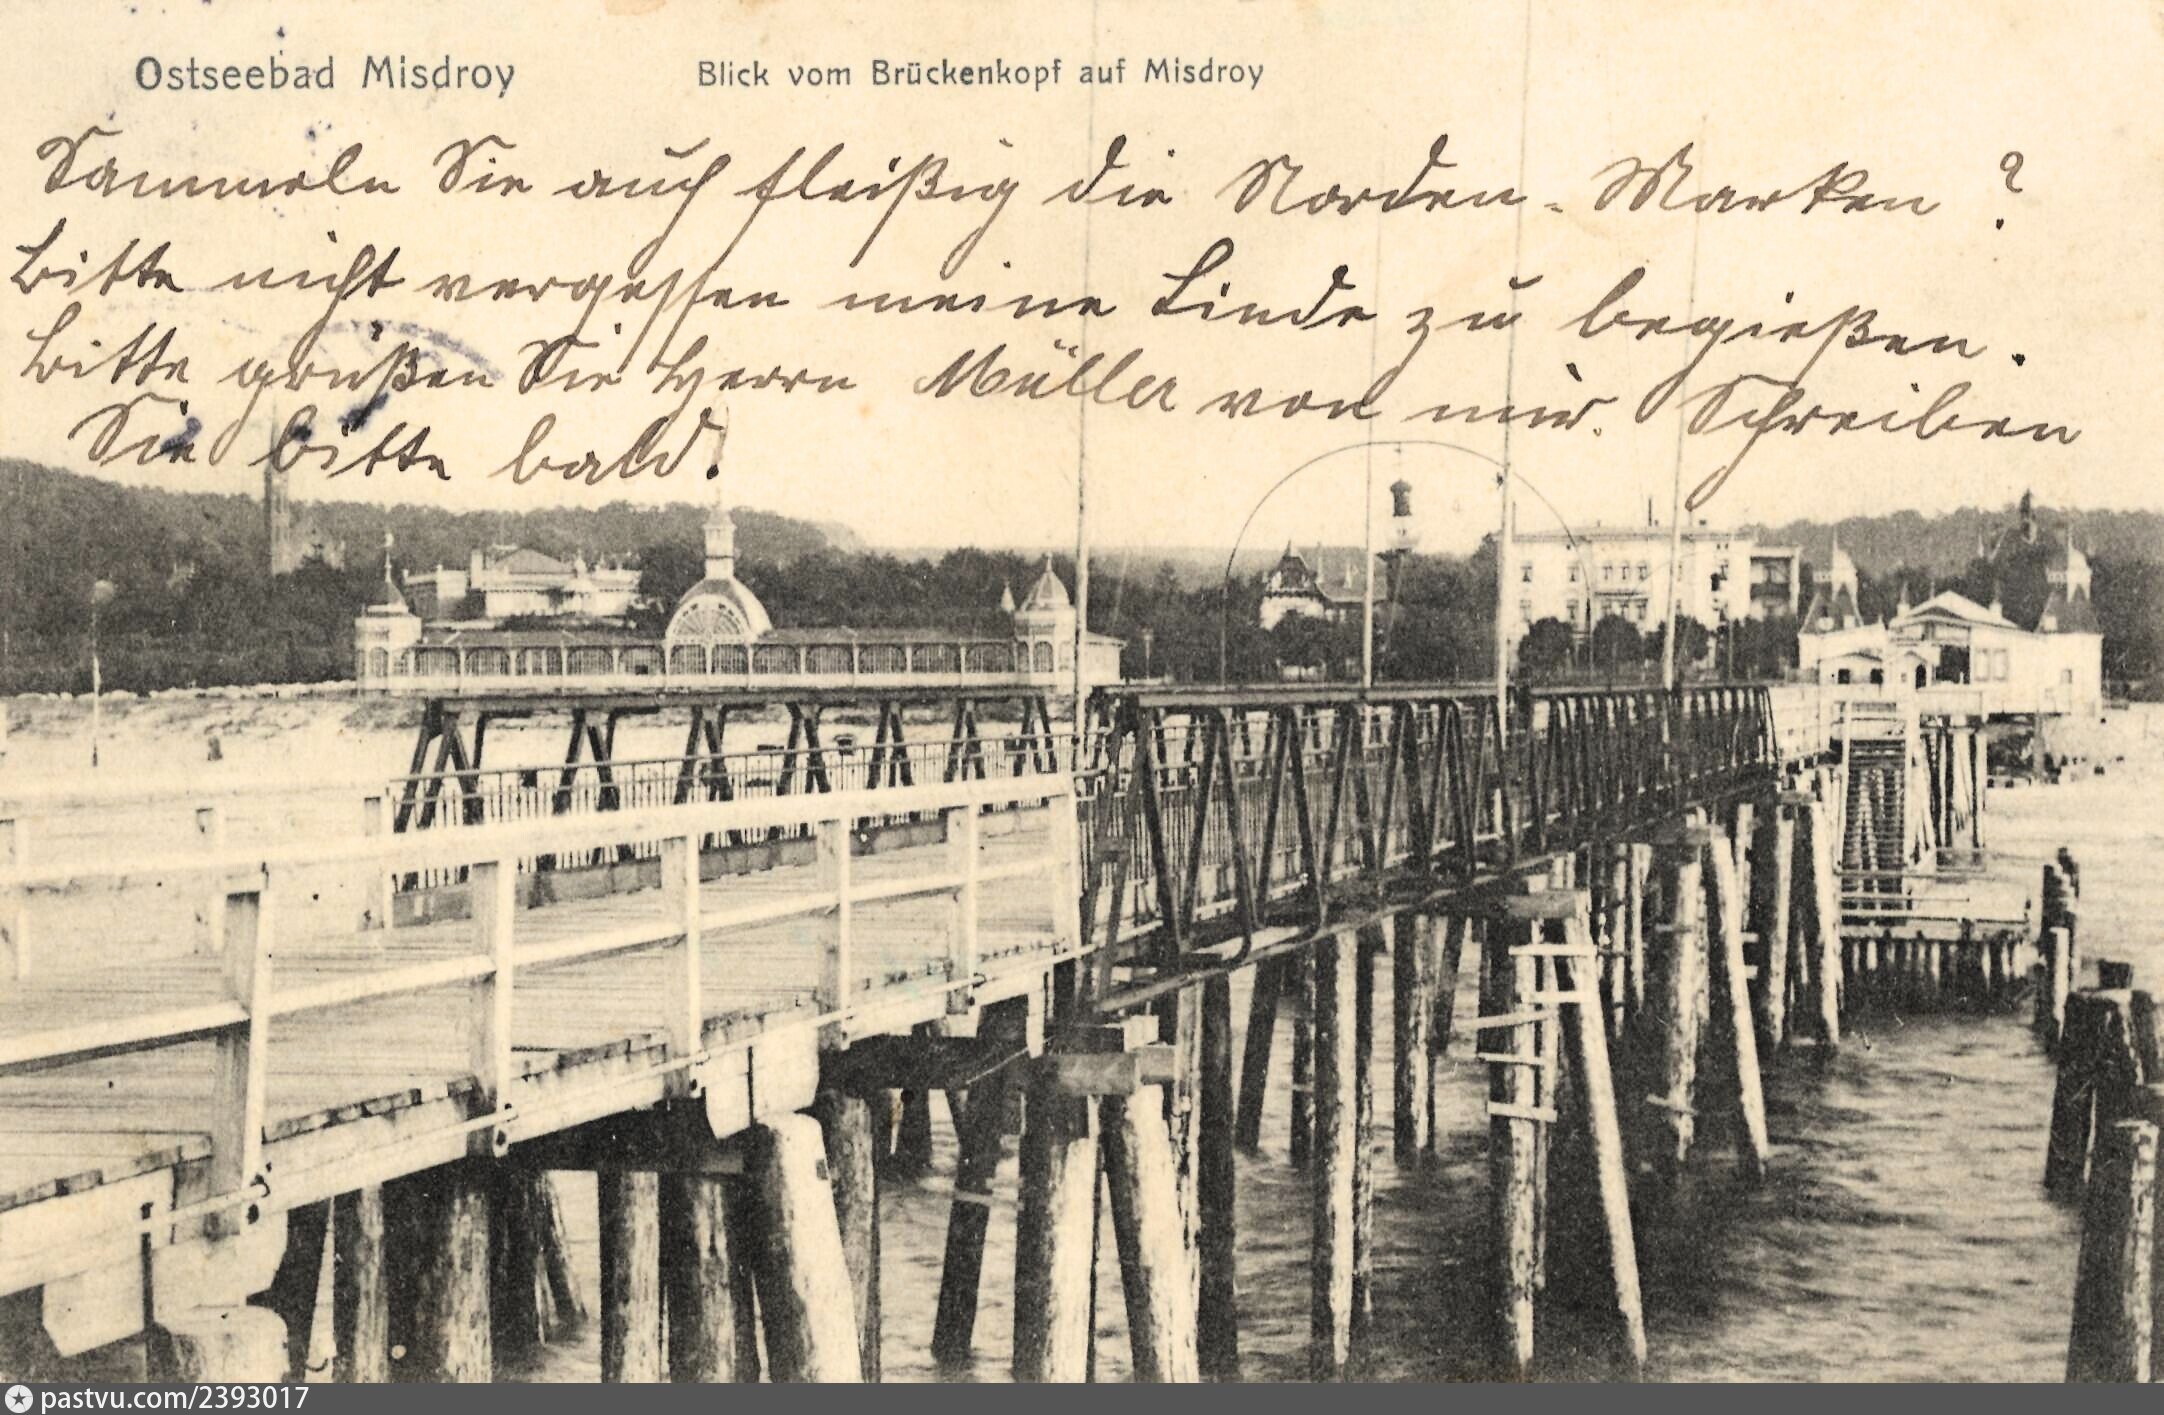 Ostseebad Misdroy Blick vom Brückenkopf auf Misdroy
Sammeln Sie auch fleißig die Norden-Marken?
Bitte nicht vergessen meine Linde zu begießen.
Bitte grüßen Sie Herrn Müller von mir. Schreiben
Sie bitte bald!
pastvu.com/2393017